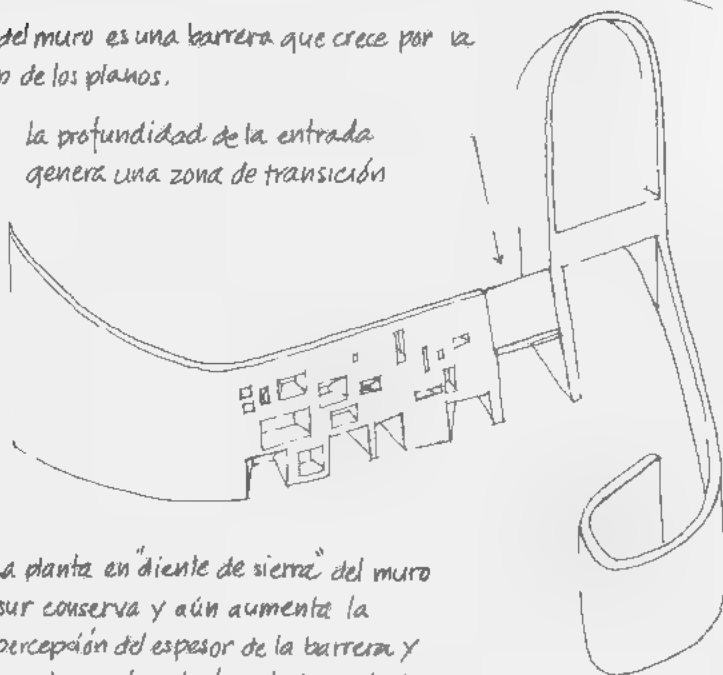 del muro es una barrera que crece por la
de los planos.
la profundidad de la entrada
genera una zona de transición
planta en "diente de sierra" del muro
sur conserva y aún aumenta la
percepción del espesor de la barrera y